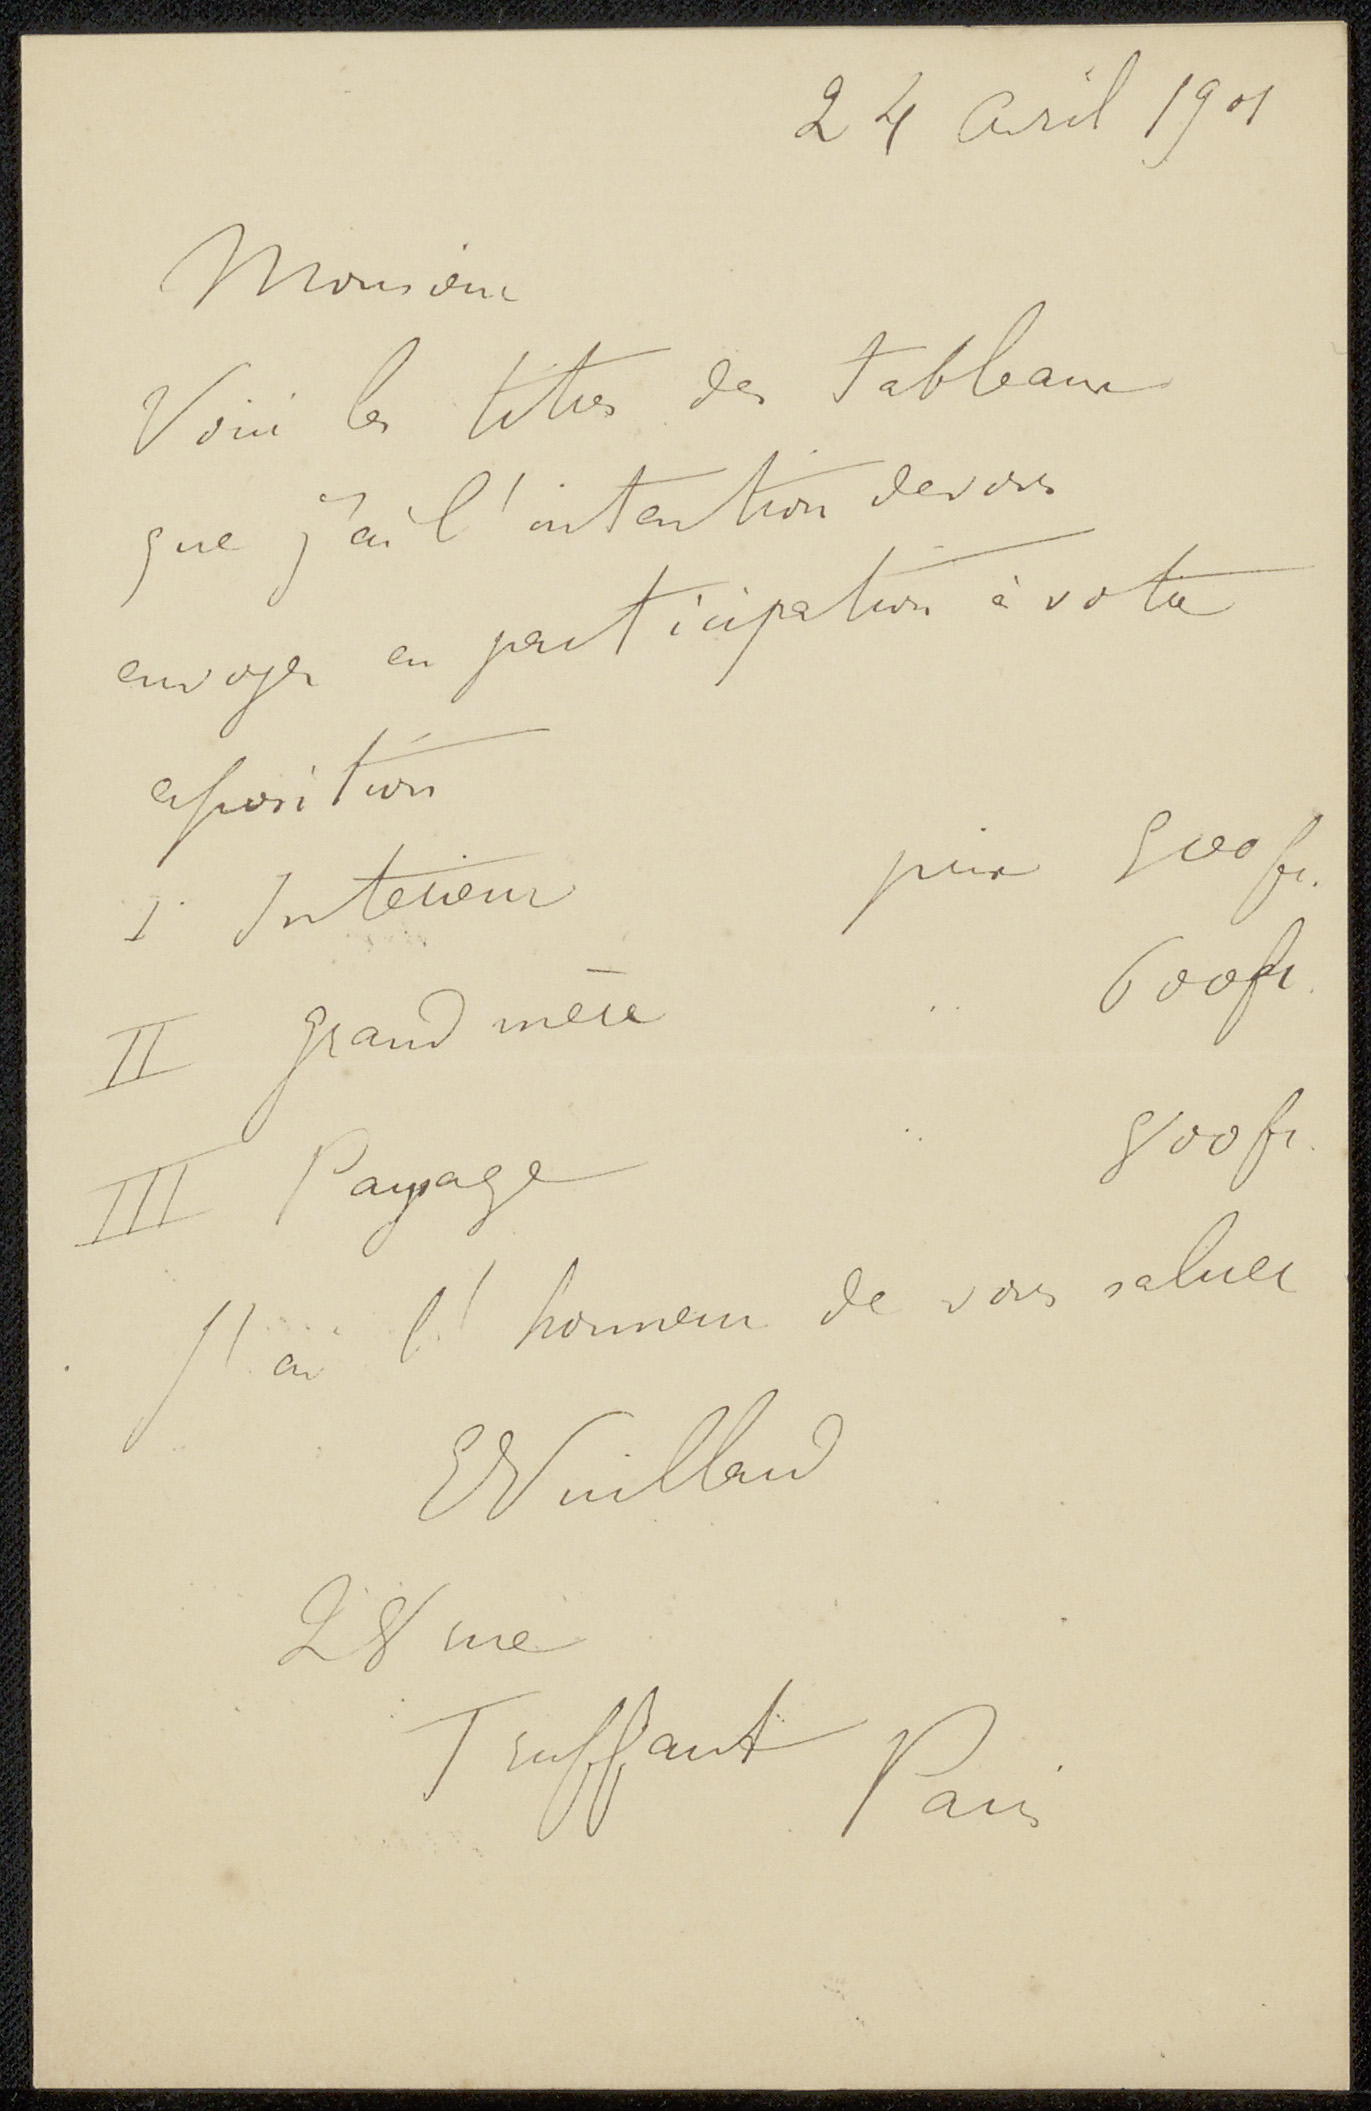 24 avril 1901
Monsieur
Voici les titres des tableaux
que j'ai l'intention de vous
envoyer en participation à votre
exposition
I Interieur prix 500 fr.
II grand mère " 600 fr.
III Paysage " 800 fr.
J'ai l'honneur de vous saluer
E Vuillard
28 rue
Truffaut Paris